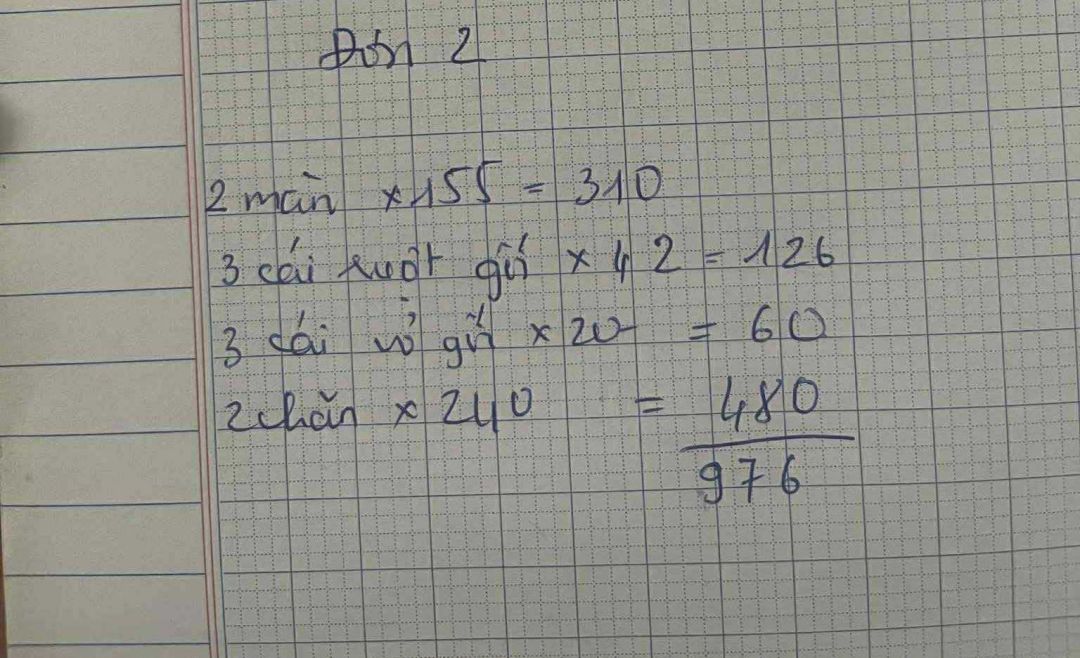 Đơn 2
2 màn x 155 = 310
3 cái ruột gối x 42 = 126
3 cái vỏ gối x 20 = 60
2 chăn x 240 = 480
976